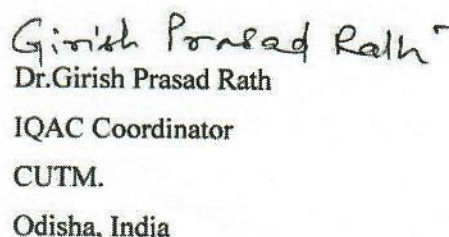 Girish Prasad Rath
Dr.Girish Prasad Rath
IQAC Coordinator
CUTM.
Odisha, India